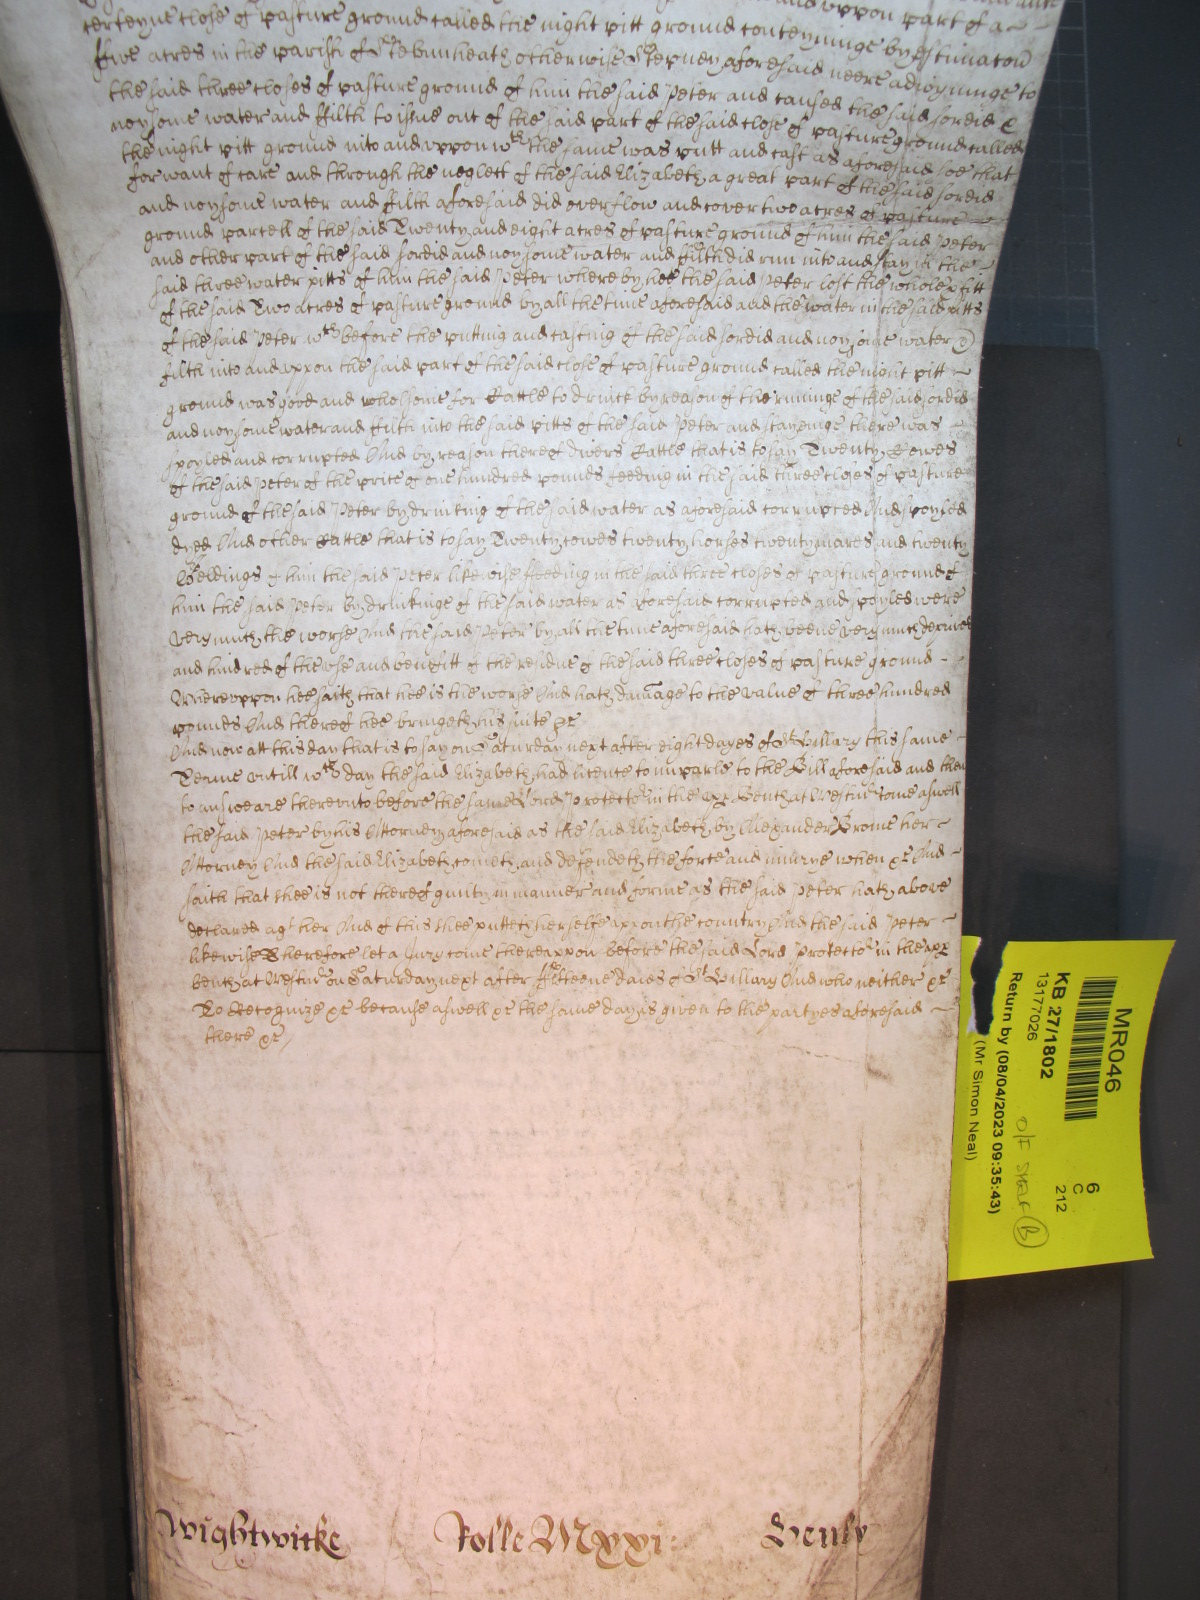 and uppon part of a
certeyne close of pasture ground called the night pitt ground conteyninge by estimacon
ffive acres in the parish of Stebunheath otherwise Stepney aforesaid neere adioyninge to
the said three closes of pasture ground of him the said Peter and caused the said sordid &
noysome water and ffilth to issue out of the said part of the said close of pasture ground called
the night pitt ground into and uppon wch the same was putt and cast as aforesaid soe that
for want of care and through the neglect of the said Elizabeth a great part of the said sordid
and noysome water and filth aforesaid did overflow and cover two acres of pasture
ground parcell of the said Twenty and eight acres of pasture ground of him the said Peter
and other part of the said sordid and noysome water and ffilth did run into and stay in the
said three water pitts of him the said Peter whereby hee the said Peter lost the whole pfitt
of the said Two acres of pasture ground by all the time aforesaid and the water in the said pitts
of the said Peter wch before the putting and casting of the said sordid and noysome water &
filth into and uppon the said part of the said close of pasture ground called the night pitt
ground was good and wholsome for Cattle to drincke by reason of the runinge of the said sordid
and noysome water and ffilth into the said pitts of the said Peter and stayeinge there was
spoyled and corrupted And by reason thereof divers Cattle that is to say Twenty Cowes
of the said Peter of the price of one hundred pounds feeding in the said three closes of pasture
ground of the said Peter by drinking of the said water as aforesaid corrupted And spoyled
dyed And other Cattle that is to say Twenty cowes twenty horses twenty mares and twenty
Geldings of him the said Peter likewise feeding in the said three closes of pasture ground of
him the said Peter by drinkinge of the said water as aforesaid corrupted and spoyled were
very much the worse And the said Peter by all the time aforesaid hath beene very much deprived
and hindred of the use and benefitt of the residue of the said three closes of pasture ground
Whereuppon hee saith that hee is the worse And hath damage to the value of three hundred
pounds And thereof hee bringeth his suite &c
And now att this day that is to say on Saturday next after eight dayes of St Hillary this same
Terme untill wch day the said Elizabeth had licence to imparle to the Bill aforesaid and then
to answeare thereunto before the same Lord Protector in the upp Bench at Westmr come aswell
the said Peter by his Attorney aforesaid as the said Elizabeth by Alexander Brome her
Attorney And the said Elizabeth cometh and defendeth the force and iniurye when &c And
saith that shee is not thereof guilty in manner and forme as the said Peter hath above
declared agt her And of this shee putteth herselfe uppon the country And the said Peter
likewise Therefore let a Jury come thereuppon before the said Lord Protector in the upp
bench at Westmr on Saturday next after ffifteene daies of St Hillary And who neither &c
To Recognize &c because aswell &c the same day is given to the partyes aforesaid
there &c
Wightwicke Rolle Mxxi: Henly
MR046
KB 27/1802
13177026
Return by (08/04/2023 09:35:43)
(Mr Simon Neal)
6
C
212
O/F SHELF B